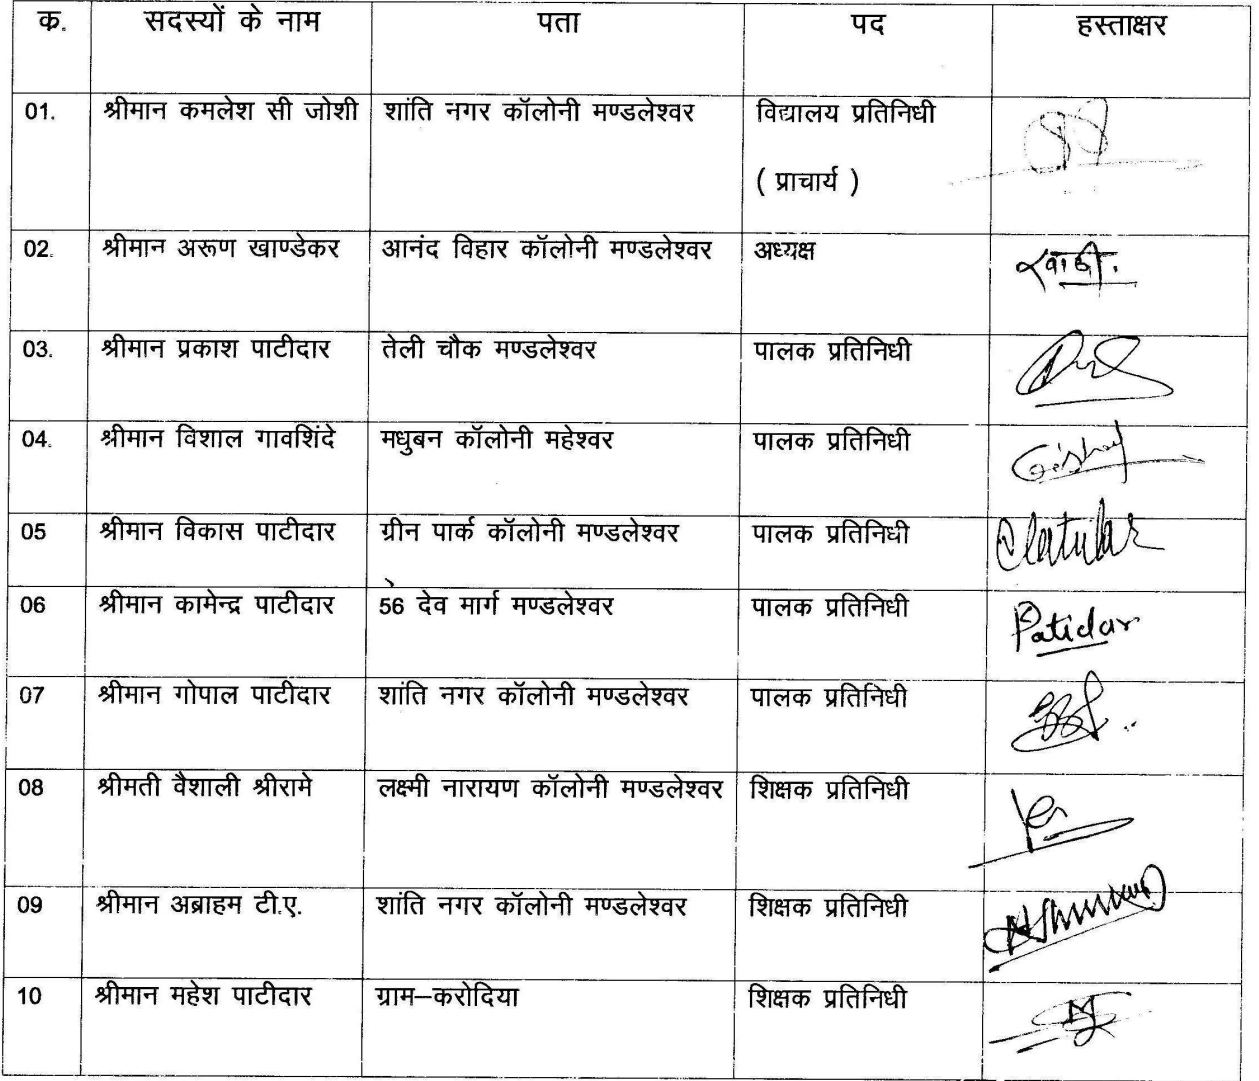 क. सदस्यों के नाम पता पद हस्ताक्षर
01. श्रीमान कमलेश सी जोशी शांति नगर कॉलोनी मण्डलेश्वर विद्यालय प्रतिनिधी
( प्राचार्य )
02. श्रीमान अरूण खाण्डेकर आनंद विहार कॉलोनी मण्डलेश्वर अध्यक्ष
03. श्रीमान प्रकाश पाटीदार तेली चौक मण्डलेश्वर पालक प्रतिनिधी
04. श्रीमान विशाल गावशिंदे मधुबन कॉलोनी महेश्वर पालक प्रतिनिधी
05 श्रीमान विकास पाटीदार ग्रीन पार्क कॉलोनी मण्डलेश्वर पालक प्रतिनिधी
06 श्रीमान कामेन्द्र पाटीदार 56 देव मार्ग मण्डलेश्वर पालक प्रतिनिधी Patidar
07 श्रीमान गोपाल पाटीदार शांति नगर कॉलोनी मण्डलेश्वर पालक प्रतिनिधी
08 श्रीमती वैशाली श्रीरामे लक्ष्मी नारायण कॉलोनी मण्डलेश्वर शिक्षक प्रतिनिधी
09 श्रीमान अब्राहम टी.ए. शांति नगर कॉलोनी मण्डलेश्वर शिक्षक प्रतिनिधी
10 श्रीमान महेश पाटीदार ग्राम–करोदिया शिक्षक प्रतिनिधी